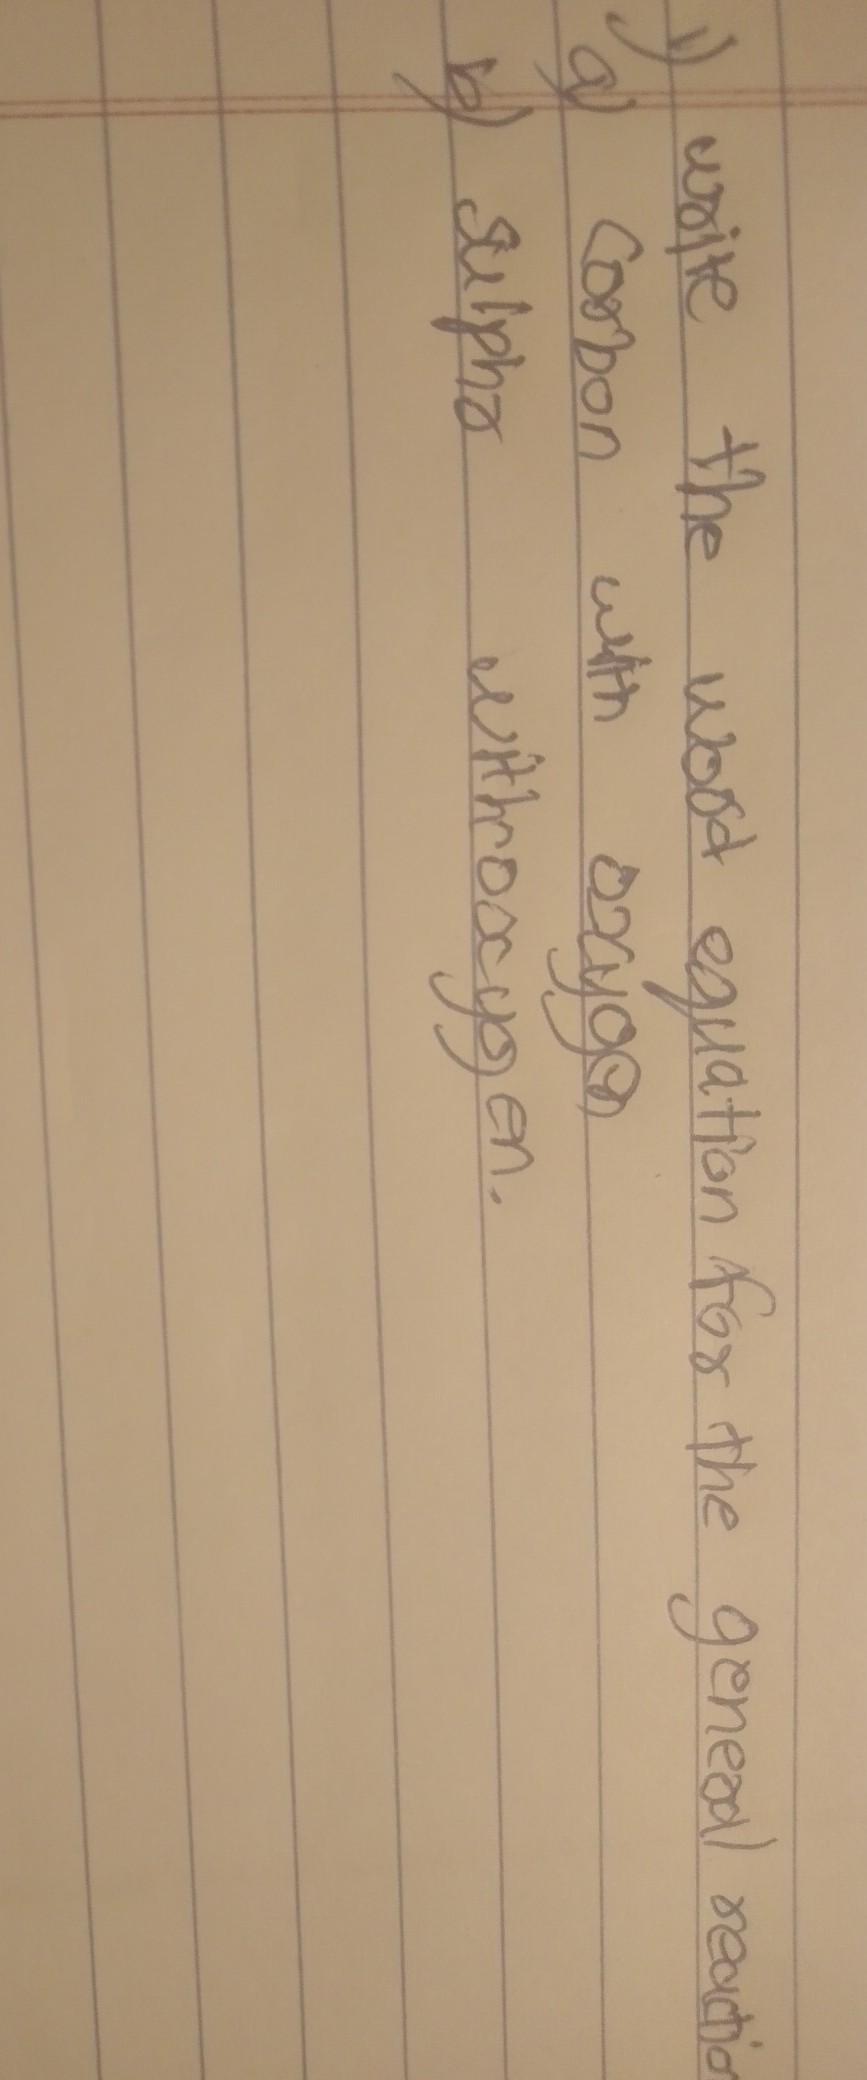 1) write the word equation for the general reactio
a) Carbon with oxygen
b) Sulphr withroxygen.